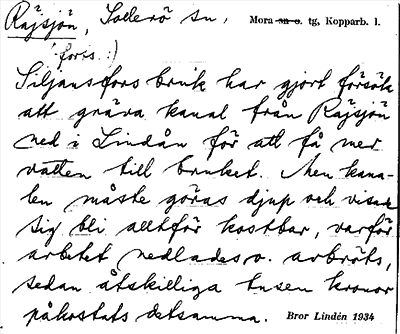 Räjsjön, Sollerö sn, Mora sn o. tg, Kopparb. l.
(forts. :)
Siljansfors bruk har gjort försök
att gräva kanal från Räjsjön
ned i Lindån för att få mer
vatten till bruket. Men kana-
len måste göras djup och visade
sig bli alltför kostbar, varför
arbetet nedlades o. avbröts,
sedan åtskilliga tusen kronor
påkostats detsamma. Bror Lindén 1934